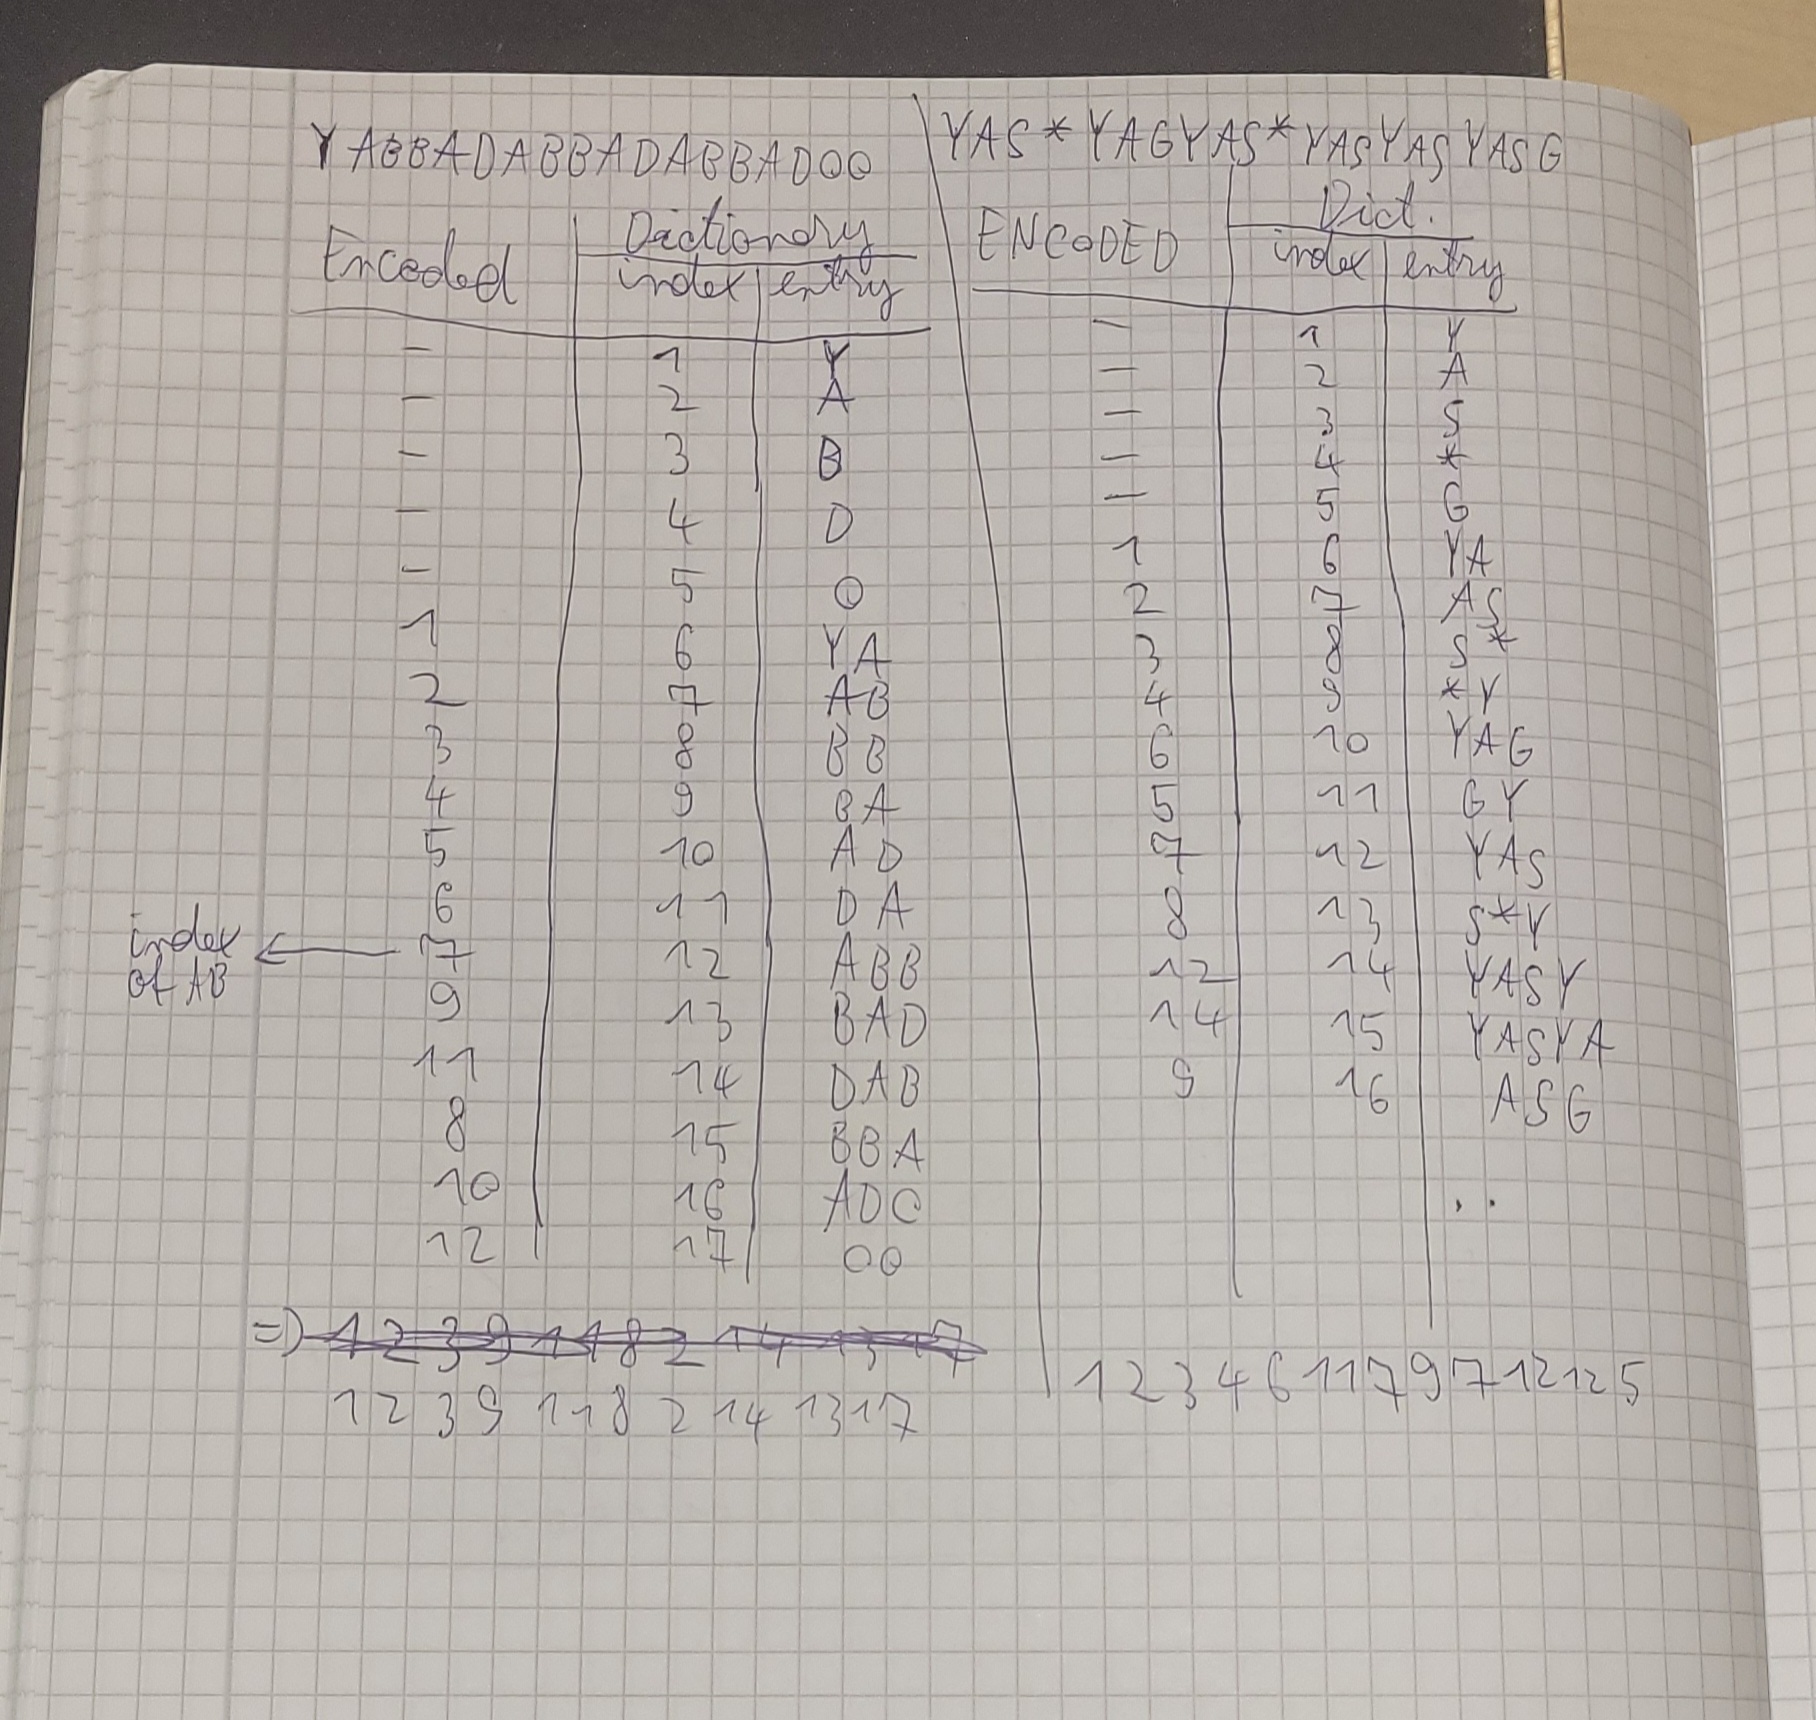 YABBADABBADABBADOO
Encoded Dictionary
index entry
- 1 Y
- 2 A
- 3 B
- 4 D
- 5 O
1 6 YA
2 7 AB
3 8 BB
4 9 BA
5 10 AD
6 11 DA
index of AB ← 7 12 ABB
9 13 BAD
11 14 DAB
8 15 BBA
10 16 ADO
12 17 OO
=) 1 2 3 9 11 8 2 14 13 17
1 2 3 9 11 8 2 14 13 17
YAS*YAGYAS*YASYASYASG
ENCODED Dict.
index entry
- 1 Y
- 2 A
- 3 S
- 4 *
- 5 G
1 6 YA
2 7 AS
3 8 S*
4 9 *Y
6 10 YAG
5 11 GY
7 12 YAS
8 13 S*Y
12 14 YASY
14 15 YASYA
9 16 ASG
..
1 2 3 4 6 11 7 9 7 12 12 5